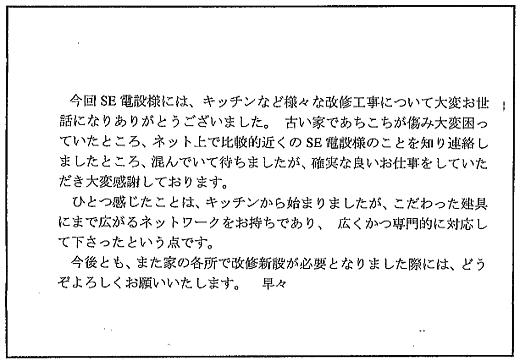 今回 SE 電設様には、キッチンなど様々な改修工事について大変お世
話になりありがとうございました。 古い家であちこちが傷み大変困っ
ていたところ、ネット上で比較的近くの SE 電設様のことを知り連絡し
ましたところ、混んでいて待ちましたが、確実な良いお仕事をしていた
だき大変感謝しております。
ひとつ感じたことは、キッチンから始まりましたが、こだわった建具
にまで広がるネットワークをお持ちであり、 広くかつ専門的に対応し
て下さったという点です。
今後とも、また家の各所で改修新設が必要となりました際には、どう
ぞよろしくお願いいたします。 早々